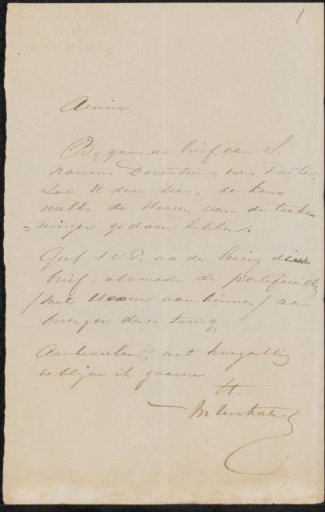 1
Amice,
Bijgaande brief van S.
namens Directeur van Teijler,
zal U doen zien, de keus
welke de Heeren van de teeke-
ningen gedaan hebben.
Geef S.V.P. na de lezing die
brief, alsmede de portefeuille
brenger dezes terug
Aanbevelend, met hoogachting
verblijve ik gaarne